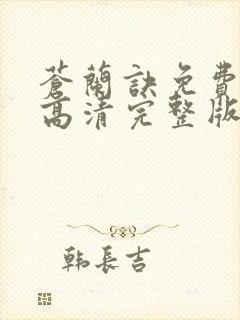 蒼蘭訣免費
高清完整版
韩長吉